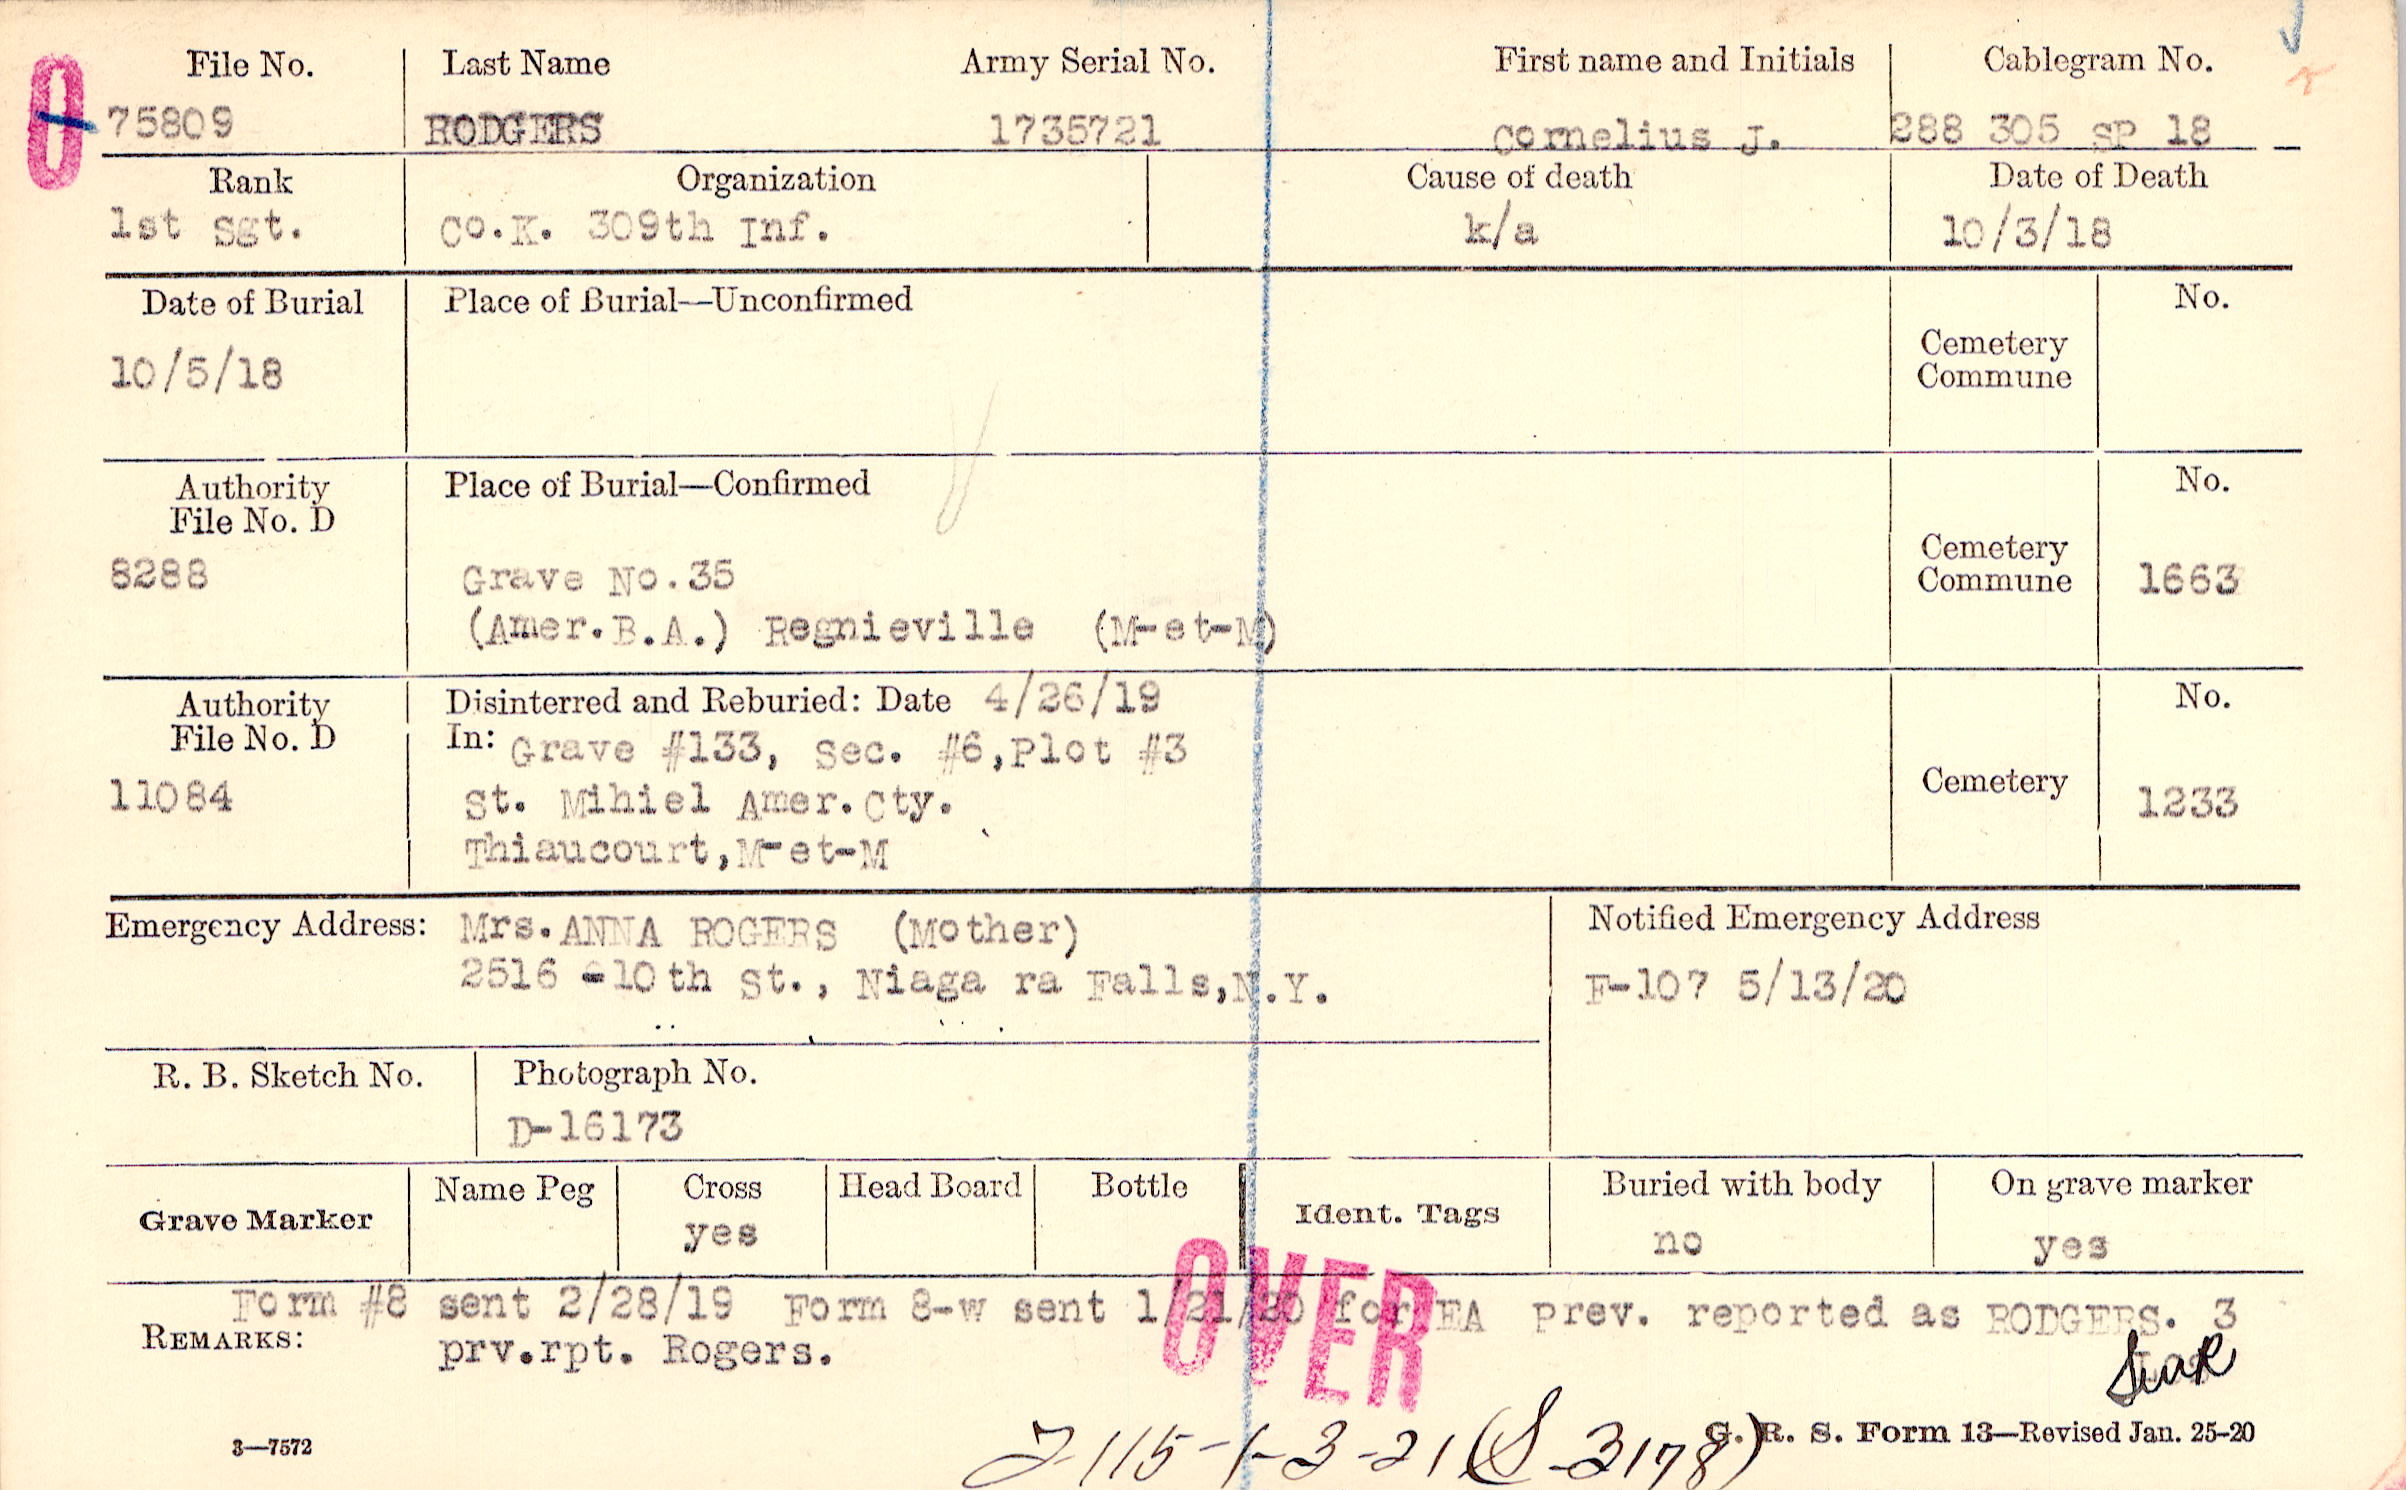 File No. Last Name Army Serial No. First name and Initials Cablegram No.
O 75809 RODGERS 1735721 Cornelius J. 288 305 SP 18
Rank Organization Cause of death Date of Death
1st Sgt. Co.K. 309th Inf. k/a 10/3/18
Date of Burial Place of Burial—Unconfirmed No.
10/5/18
Cemetery
Commune
Authority Place of Burial—Confirmed No.
File No. D
8288 Grave No.35
Cemetery
Commune 1663
(Amer.B.A.) Regnieville (M-et-M)
Authority Disinterred and Reburied: Date 4/26/19 No.
File No. D In: Grave #133, Sec. #6,Plot #3
11084 St. Mihiel Amer.Cty. Cemetery 1233
Thiaucourt,M-et-M
Emergency Address: Mrs.ANNA ROGERS (Mother) Notified Emergency Address
2516 -10th St., Niaga ra Falls,N.Y. F-107 5/13/20
R. B. Sketch No. Photograph No.
D-16173
Grave Marker Name Peg Cross Head Board Bottle Ident. Tags Buried with body On grave marker
yes no yes
Form #8 sent 2/28/19 Form 8-w sent 1/21/20 for EA prev. reported as RODGERS. 3
REMARKS: prv.rpt. Rogers.
OVER
3—7572 G. R. S. Form 13—Revised Jan. 25-20
115-1-3-21 (S-3178)